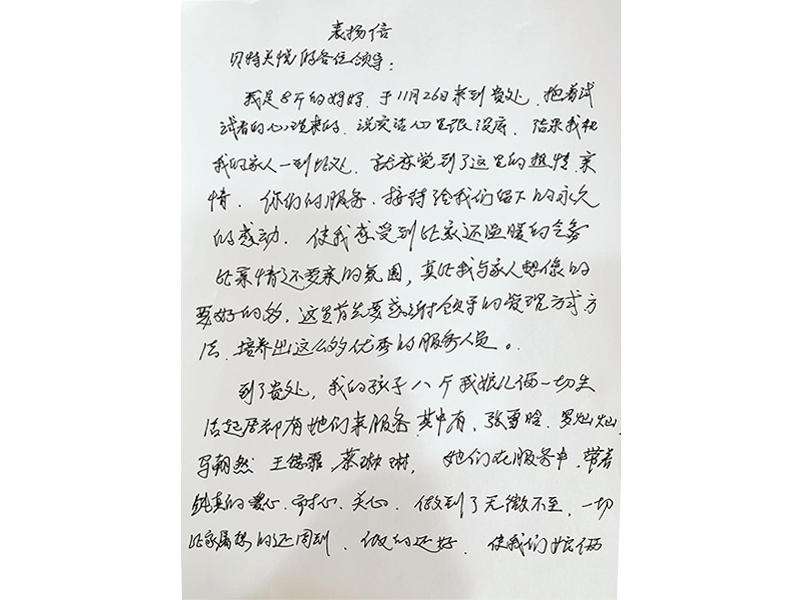 表扬信
贝特关悦的各位领导：
我是8斤的妈妈，于11月26日来到贵处，抱着试
试看的心理来的，说实话心里很没底，结果我和
我的家人一到此处，就感觉到了这里的热情、亲
情，你们的服务、接待给我们留下的永久
的感动，使我感受到比家还温暖的
比亲情还要亲的氛围，真比我与家人想像的
要好的多，这里首先要感谢领导的管理方式方
法，培养出这么多优秀的服务人员。
到了贵处，我的孩子八斤我娘儿俩一切生
活起居都有她们来服务，其中有，张雪晗、罗灿灿，
马朝然 王 蔡琳琳，她们在服务中，带着
纯真的爱心、耐心、关心，做到了无微不至，一切
比家属想的还周到，做的还好，使我们娘俩